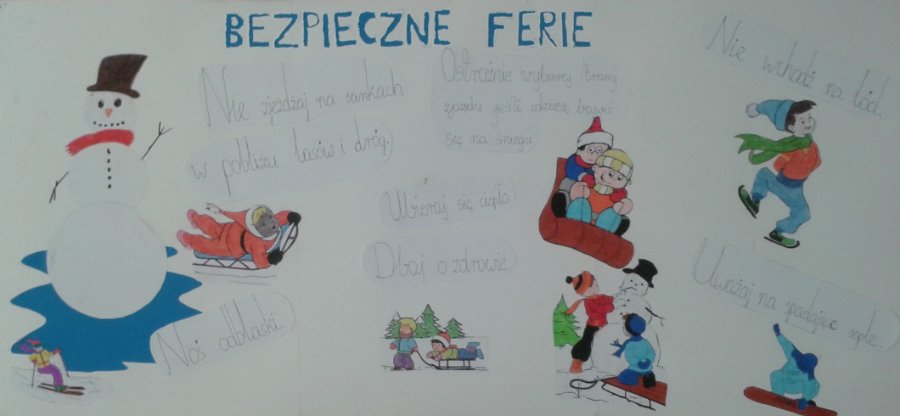 BEZPIECZNE FERIE
Nie zjeżdżaj na sankach
w pobliżu lasów i dróg.
Ostrożnie wybieraj trasy
zjazdu jeśli idziesz bawić
się na śniegu
Nie wchodź na lód.
Ubieraj się ciepło
Dbaj o zdrowie
Noś odblaski
Uważaj na spadające sople.